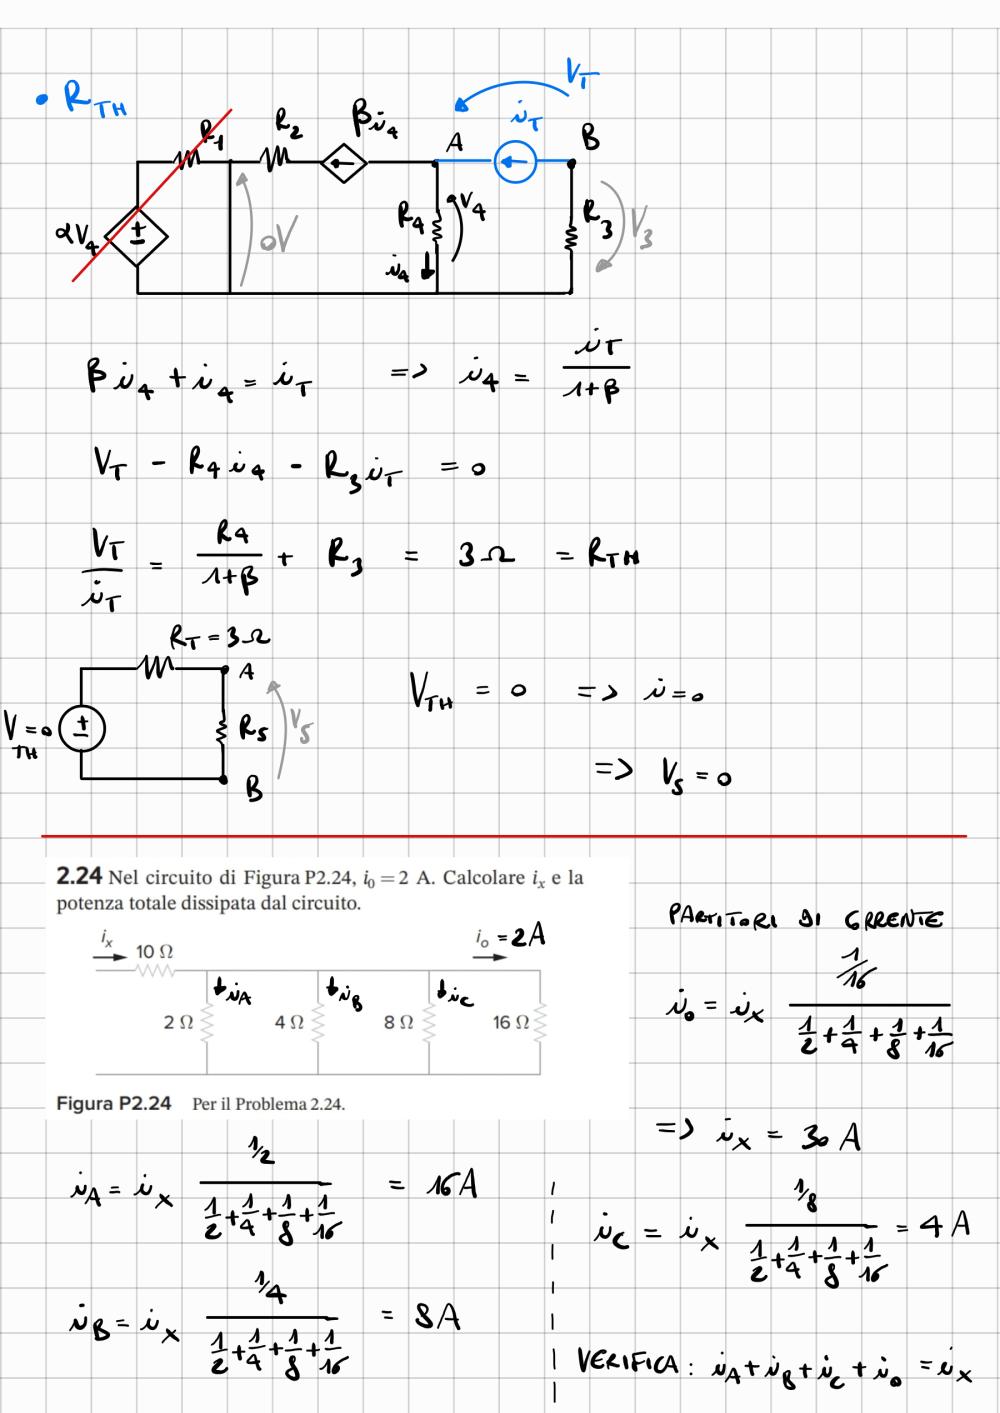 • R_TH
V_T
R_1 R_2 βi_4 A i_T B
αV_4 ± 0V R_4 V_4 R_3 V_3
i_4
βi_4 + i_4 = i_T => i_4 = i_T / (1+β)
V_T - R_4 i_4 - R_3 i_T = 0
V_T / i_T = R_4 / (1+β) + R_3 = 3Ω = R_TH
R_T = 3Ω
A
V_TH = 0 ± R_5 V_5
B
V_TH = 0 => i = 0
=> V_5 = 0
2.24 Nel circuito di Figura P2.24, i_0 = 2 A. Calcolare i_x e la
potenza totale dissipata dal circuito.
i_x 10 Ω i_o = 2A
i_A i_B i_C
2 Ω 4 Ω 8 Ω 16 Ω
Figura P2.24 Per il Problema 2.24.
PARTITORI DI CORRENTE
i_o = i_x (1/16) / (1/2 + 1/4 + 1/8 + 1/16)
=> i_x = 30 A
i_A = i_x (1/2) / (1/2 + 1/4 + 1/8 + 1/16) = 16A
i_B = i_x (1/4) / (1/2 + 1/4 + 1/8 + 1/16) = 8A
i_C = i_x (1/8) / (1/2 + 1/4 + 1/8 + 1/16) = 4A
VERIFICA: i_A + i_B + i_C + i_o = i_x